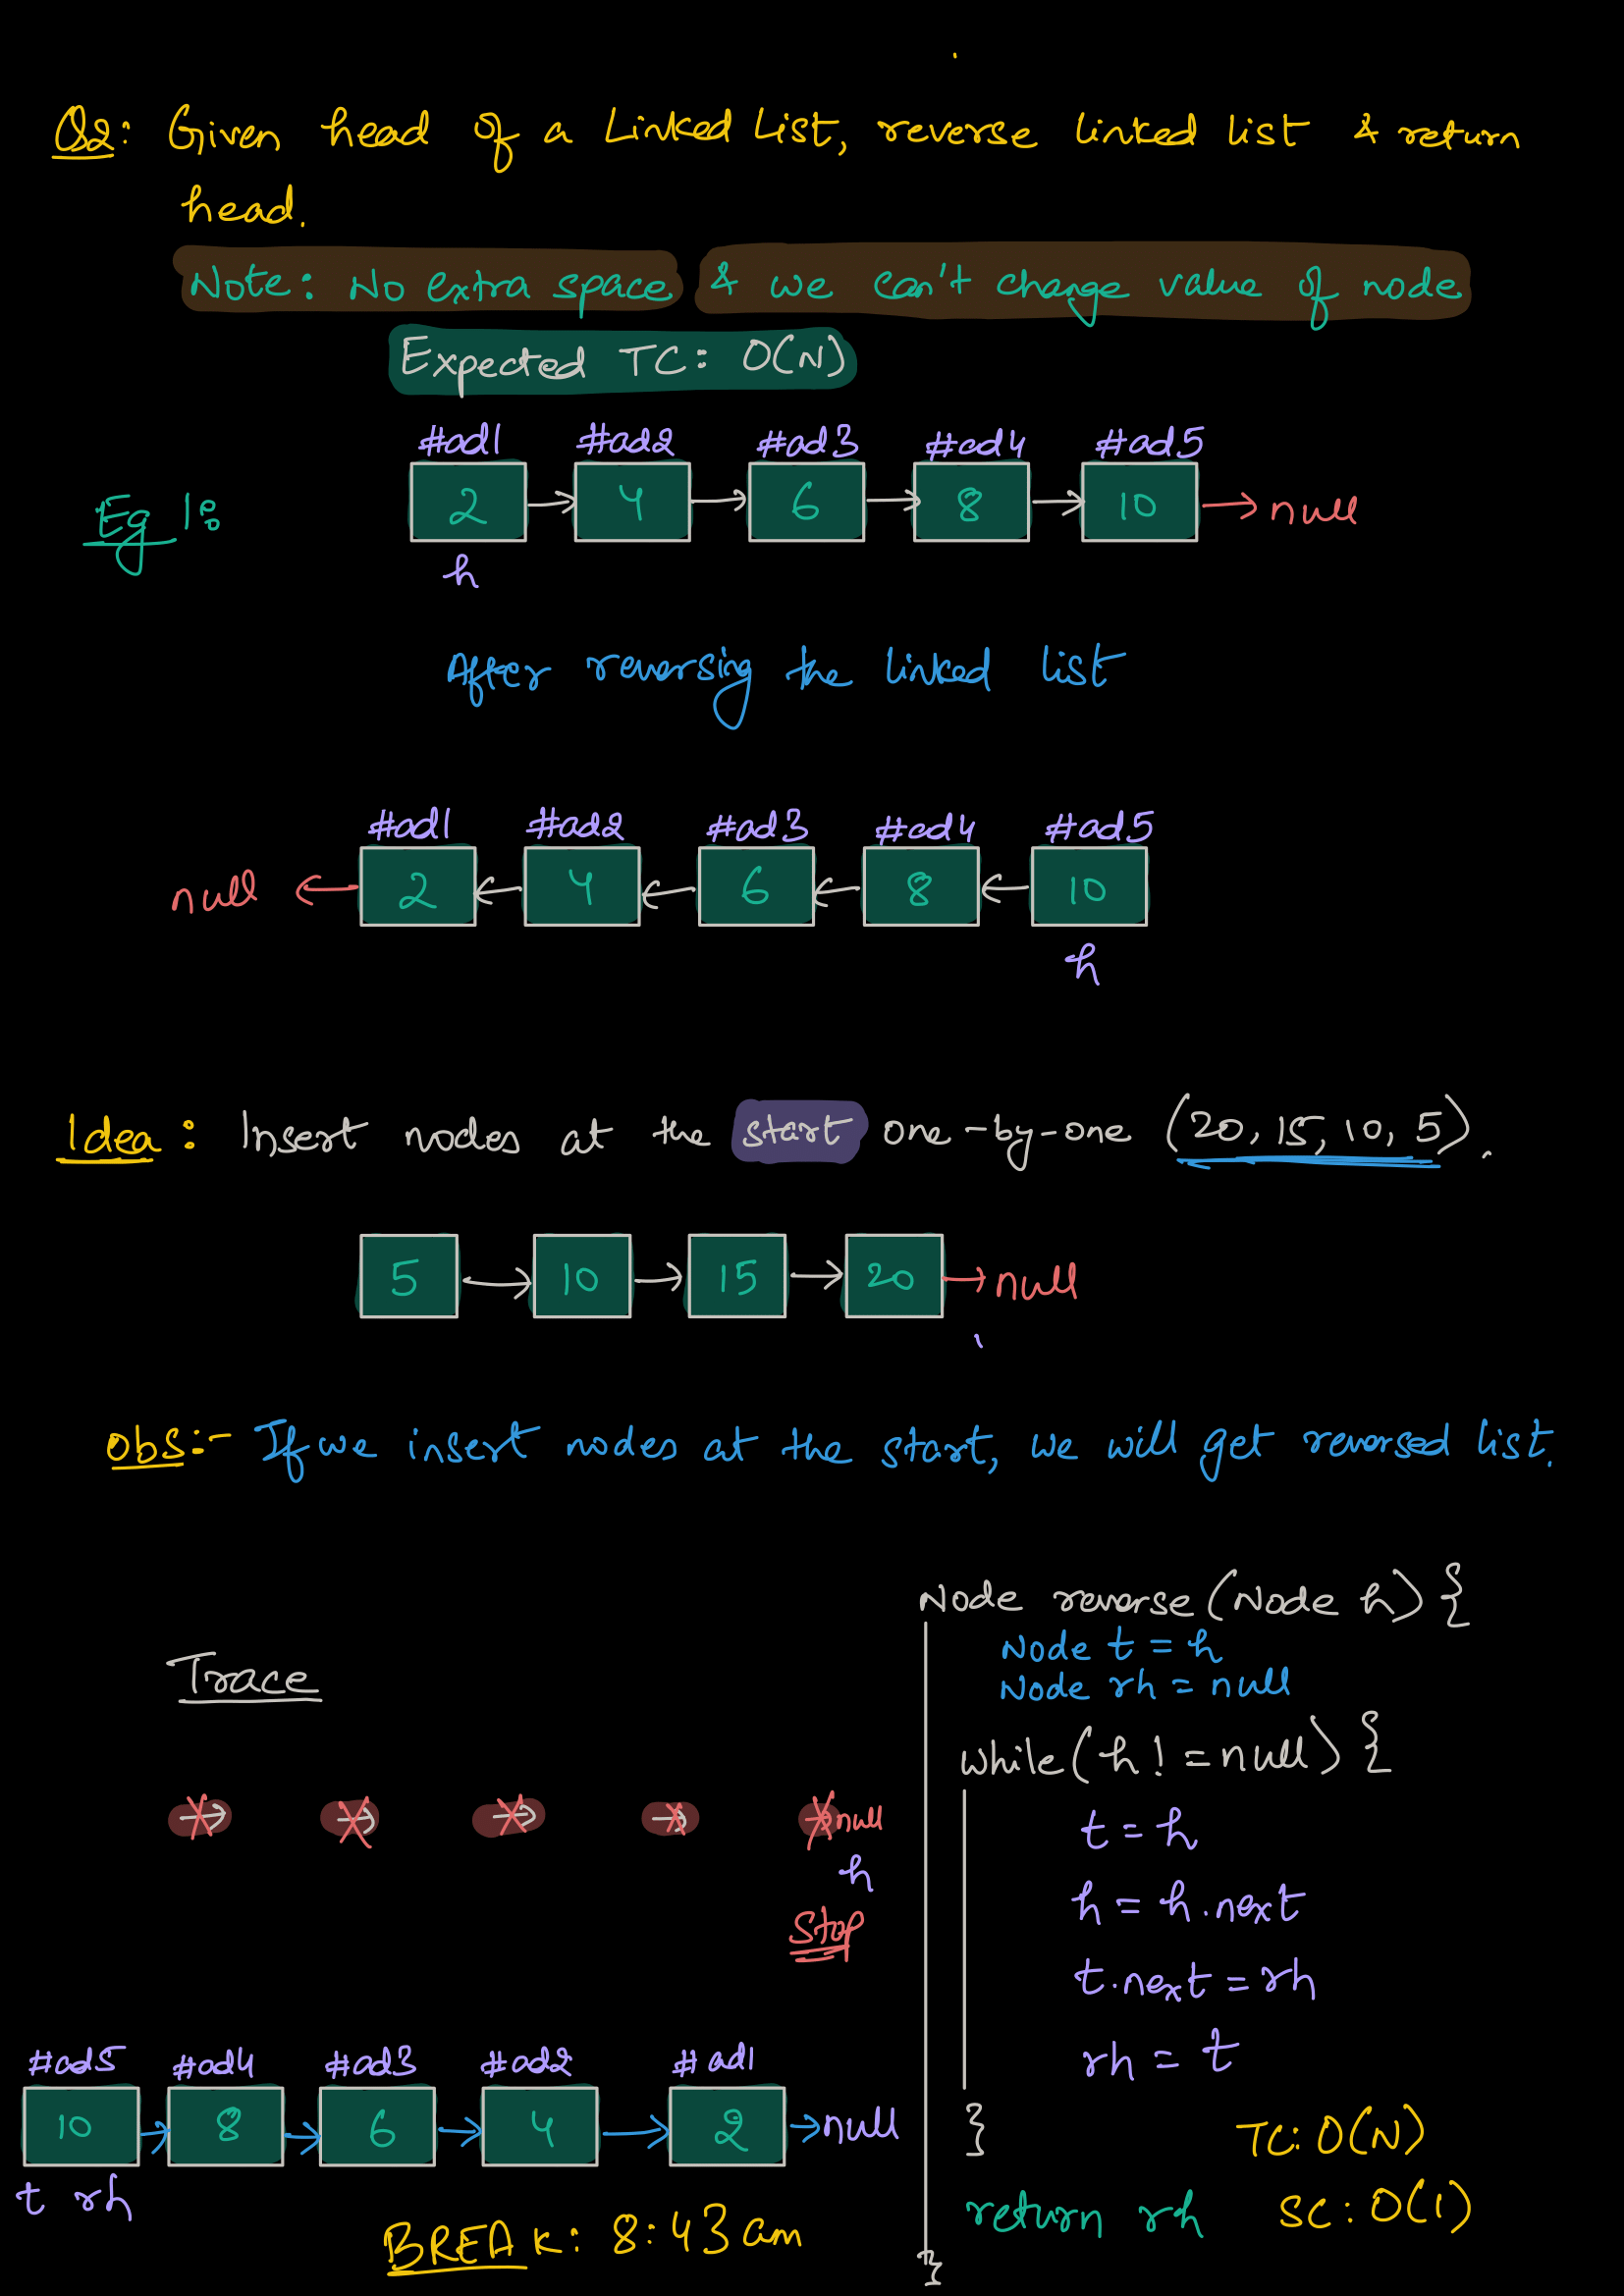 Q2: Given head of a Linked List, reverse linked list & return
head.
Note: No extra space & we can't change value of node
Expected TC: O(N)
#ad1 #ad2 #ad3 #ad4 #ad5
Eg 1: 2 → 4 → 6 → 8 → 10 → null
h
After reversing the linked list
#ad1 #ad2 #ad3 #ad4 #ad5
null ← 2 ← 4 ← 6 ← 8 ← 10
h
Idea: Insert nodes at the start one-by-one (20, 15, 10, 5).
5 → 10 → 15 → 20 → null
Obs:- If we insert nodes at the start, we will get reversed list.
Trace
null
h
Stop
#ad5 #ad4 #ad3 #ad2 #ad1
10 → 8 → 6 → 4 → 2 → null
t rh
BREAK: 8:43 am
Node reverse(Node h) {
Node t = h
Node rh = null
while(h != null) {
t = h
h = h.next
t.next = rh
rh = t
}
return rh
}
TC: O(N)
SC: O(1)